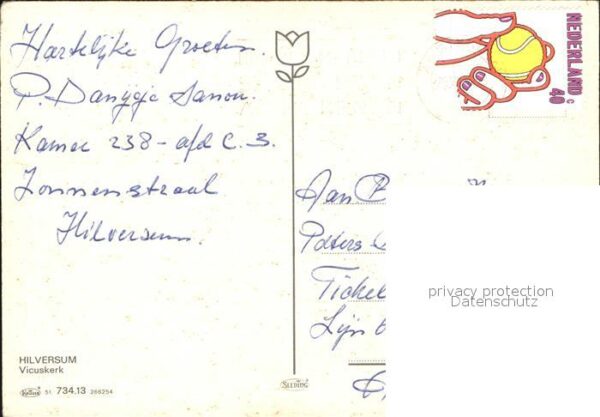 Hartelijke Groeten.
P.
Kamer 238 - afd C. 3.
Zonnestraal
Hilversum.
NEDERLAND c 40
Aan
Tickel
Lijn
privacy protection
Datenschutz
HILVERSUM
Vicuskerk
51 734.13 266254
SLEDING